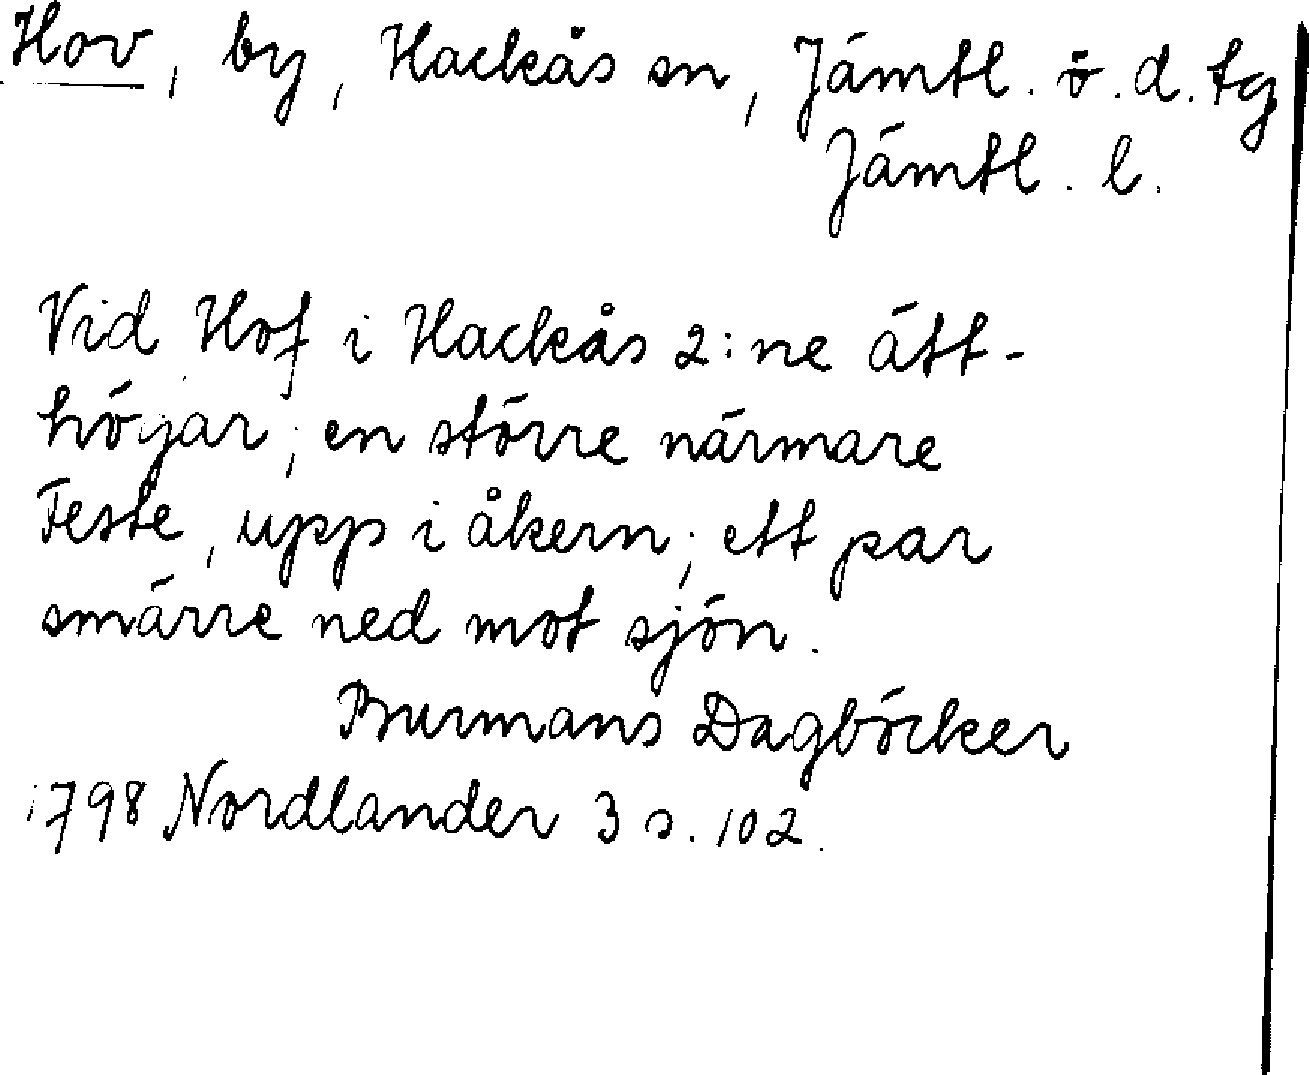 Hov, by, Hackås sn, Jämtl. ö. d. tg
Jämtl. l.
Vid Hof i Hackås 2:ne ätt-
högar; en större närmare
Feste, upp i åkern; ett par
smärre ned mot sjön.
Burmans Dagböcker
1798 Nordlander 3 s. 102.